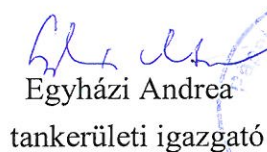 Egyházi Andrea
tankerületi igazgató